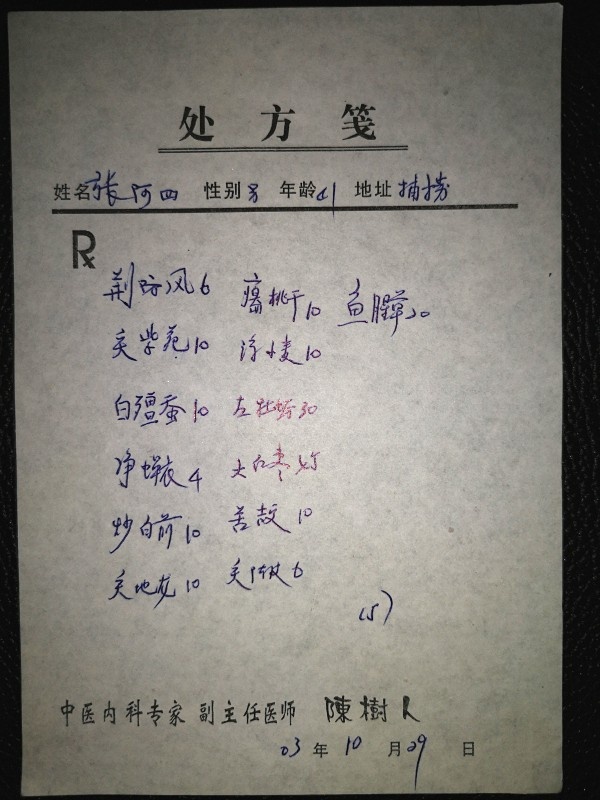 处方笺
姓名 张阿四 性别 男 年龄 41 地址 捕捞
R
荆防风 6 瘪桃干 10 鱼腥草 20
炙紫菀 10 浮小麦 10
白殭蚕 10 左牡蛎 30
净蝉衣 4 大红枣
炒白前 10 苦 10
炙地龙 10 炙 6
(5)
中医内科专家 副主任医师 陳樹人
03 年 10 月 29 日